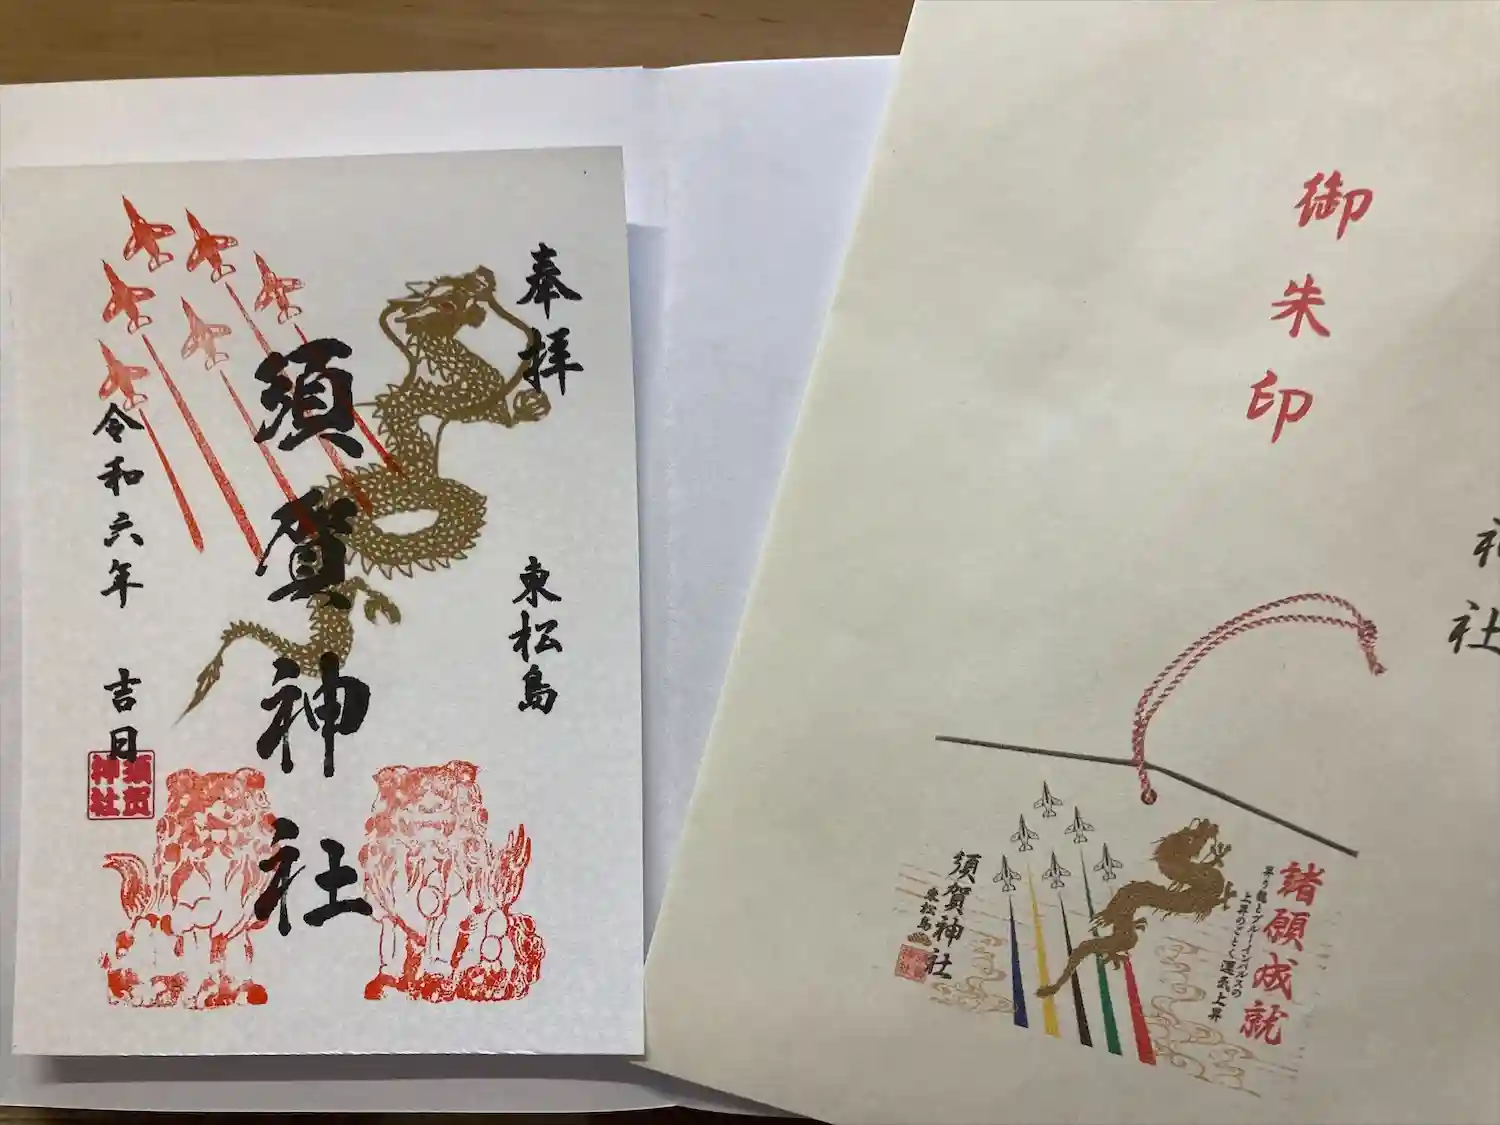 奉拝
東松島
須賀神社
令和六年 吉日
須賀
神社
御朱印
神社
諸願成就
昇り龍とブルーインパルスの
上昇のごとく運気上昇
須賀神社
東松島